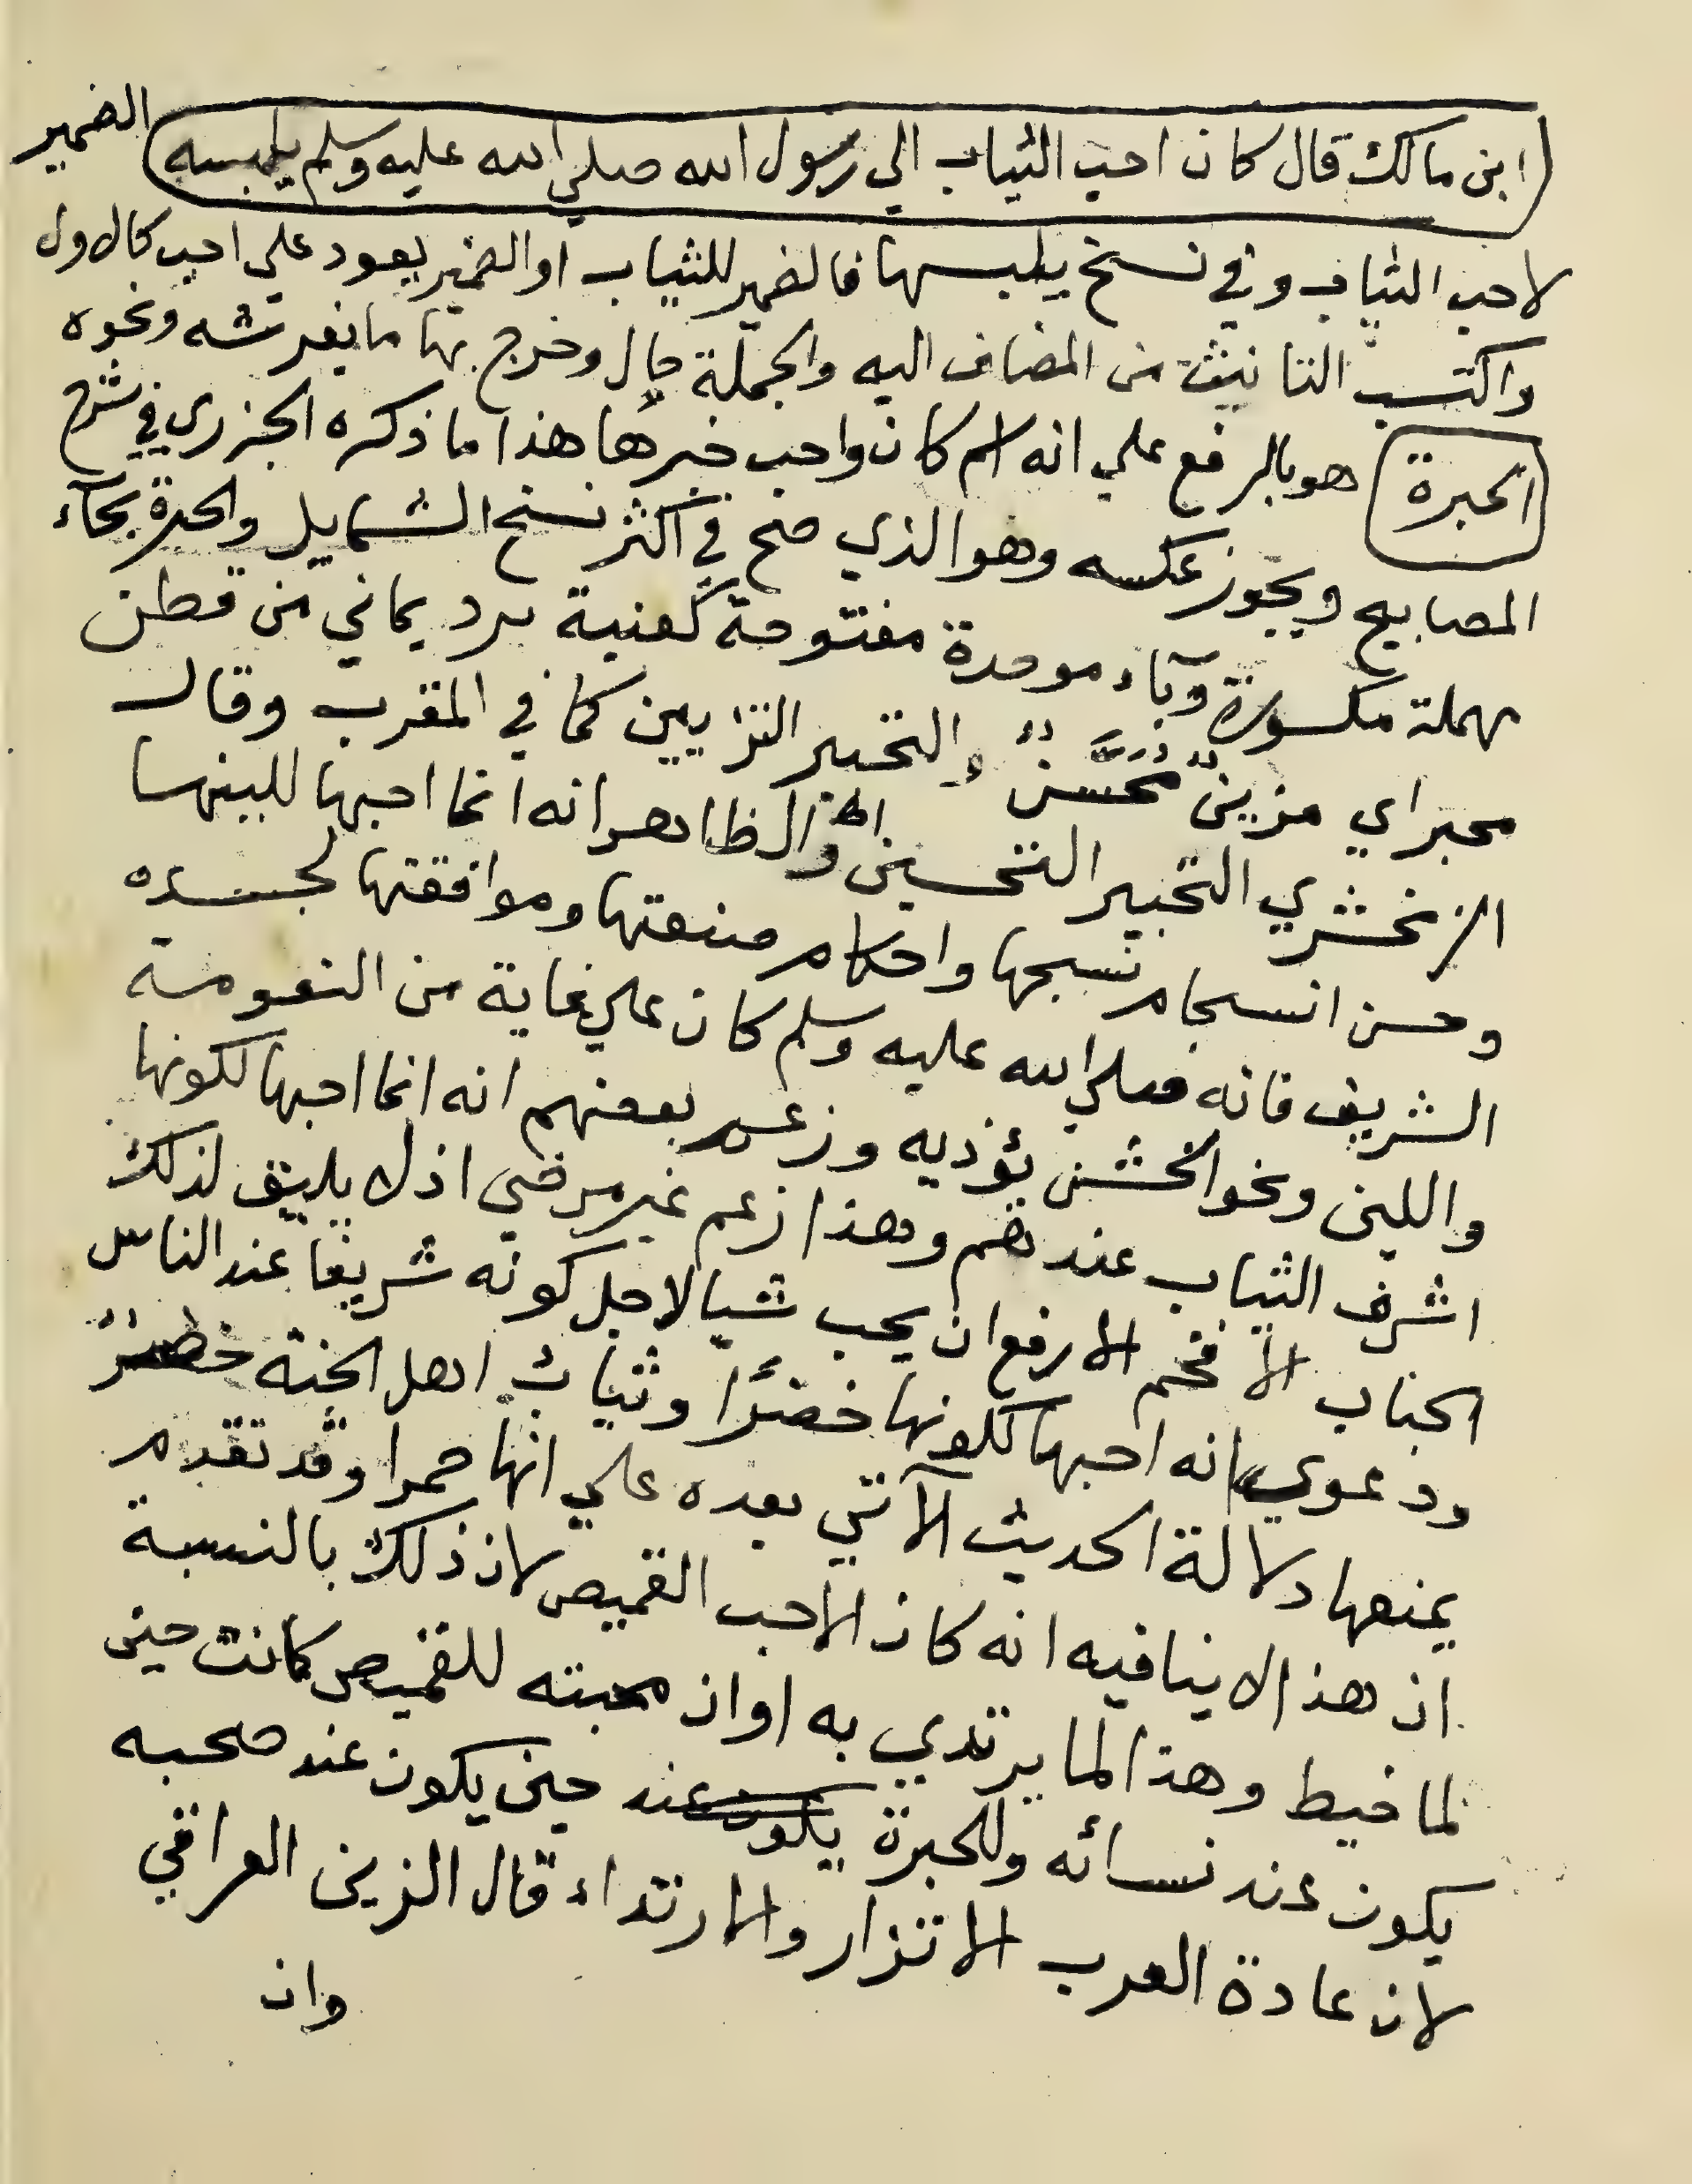 ابن مالك قال كان احب الثياب الي رسول الله صلي الله عليه وسلم يلبسه الضمير
لاحب الثياب وفي نسخ يلبسها فالضمير للثياب او الضمير يعود علي احب كالاول
واكتسب التانيث من المضاف اليه والجملة حال وخرج بها ما يفرشه ونحوه
الحبرة هو بالرفع علي انه اسم كان واحب خبرها هذا ما ذكره الجزري في شرح
المصابيح ويجوز عكسه وهو الذي صح في اكثر نسخ الشمايل والحبرة بحآء
مهملة مكسورة وبآء موحدة مفتوحة كعنبة برد يماني من قطن
محبر اي مزين محسن والتحبير التزيين كما في المغرب وقال
الزمخشري التحبير التحسين اه والظاهر انه انما احبها للينها
وحسن انسجام نسجها واحكام صنعتها وموافقتها لجسده
الشريف فانه صلي الله عليه وسلم كان علي غاية من النعومة
واللين ونحو الخشن يؤذيه وزعم بعضهم انه انما احبها لكونها
اشرف الثياب عندهم وهذا زعم غير مرضي اذ لا يليق لذلك
الجناب الافخم الارفع ان يحب شيا لاجل كونه شريفا عند الناس
ودعوي انه احبها لكونها خضرًا وثياب اهل الجنة خضرٌ
يمنعها دلالة الحديث الآتي بعده علي انها حمرا وقد تقدم
ان هذا لا ينافيه انه كان الاحب القميص لان ذلك بالنسبة
لما خيط وهذا لما يرتدي به او ان محبته للقميص كانت حين
يكون عند نسائه وللحبرة يكون عند حين يكون عند صحبه
لان عادة العرب الاتزار والارتداء قال الزين العراقي
وان